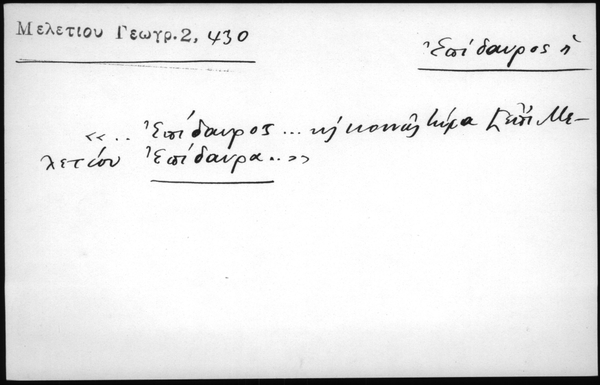 Μελετίου Γεωγρ. 2, 430
Ἐπίδαυρος ἡ
«.. Ἐπίδαυρος ... κ κοινῶς τώρα [ἐπὶ Με-
λετίου Ἐπίδαυρα..»